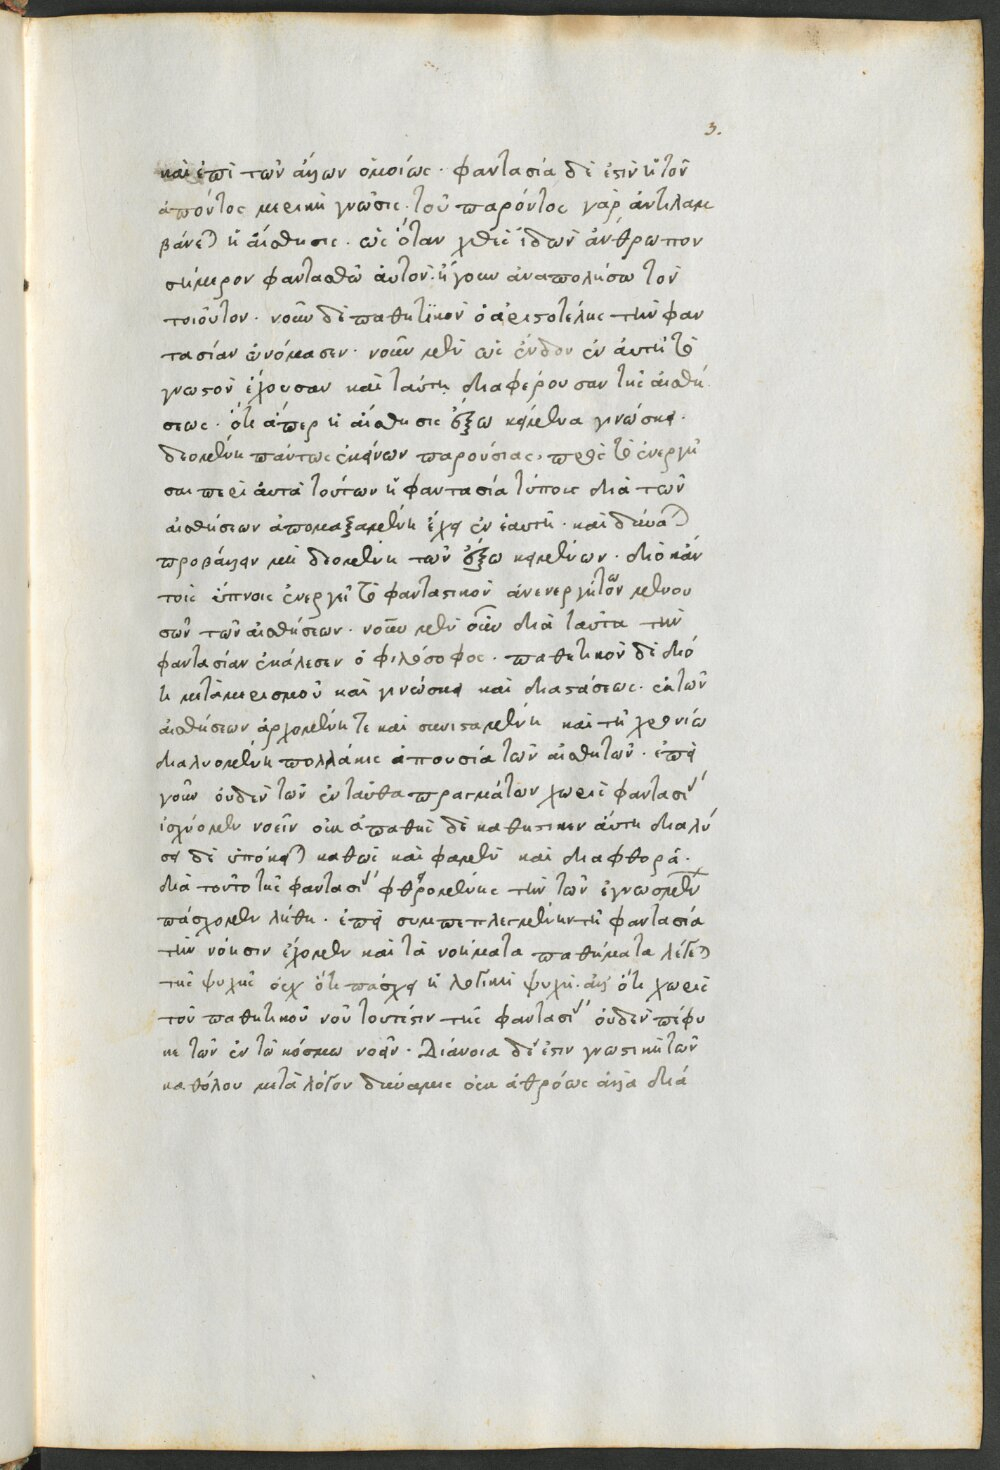 3.
καὶ ἐπὶ τῶν ἄλλων ὁμοίως · φαντασία δέ ἐστιν ἡ τοῦ
ἀπόντος μερικὴ γνῶσις · τοῦ παρόντος γὰρ ἀντιλαμ
βάνεται ἡ αἴσθησις · ὡς ὅταν χθὲς ἰδὼν ἄνθρωπον
σήμερον φαντασθῶ αὐτὸν · ἤγουν ἀναπολήσω τὸν
τοιοῦτον · νοῦν δὲ παθητικὸν ὁ ἀριστοτέλης τὴν φαν
τασίαν ὠνόμασεν · νοῦν μὲν ὡς ἔνδον ἐν αὐτῇ τὸ
γνωστὸν ἔχουσαν καὶ ταύτῃ διαφέρουσαν τῆς αἰσθή
σεως · ὅτι ἅπερ ἡ αἴσθησις ἔξω κείμενα γινώσκει ·
δεομένη πάντως ἐκείνων παρουσίας, πρὸς τὸ ἐνεργῆ
σαι περὶ αὐτὰ τούτων ἡ φαντασία τύπους διὰ τῶν
αἰσθήσεων ἀπομαξαμένη ἔχει ἐν ἑαυτῇ · καὶ δύναται
προβάλλειν μὴ δεομένη τῶν ἔξω κειμένων · διὸ κἀν
τοῖς ὕπνοις ἐνεργεῖ τὸ φανταστικὸν ἀνενεργήτων μενου
σῶν τῶν αἰσθήσεων · νοῦν μὲν οὖν διὰ ταῦτα τὴν
φαντασίαν ἐκάλεσεν ὁ φιλόσοφος · παθητικὸν δὲ διό
τι μετὰ μερισμοῦ καὶ γινώσκει καὶ διαστάσεως · ἐκ τῶν
αἰσθήσεων ἀρχομένη τε καὶ συνισταμένη καὶ τῇ χρονίω
διαλυομένη πολλάκις ἀπουσία τῶν αἰσθητῶν · ἐπεὶ
γοῦν οὐδὲν τῶν ἐνταῦθα πραγμάτων χωρὶς φαντασίας
ἰσχύομεν νοεῖν οὐκ ἀπαθὴς δὲ καθέστηκεν αὕτη διαλύ
σει δὲ ὑπόκειται καθὼς καὶ φαμὲν καὶ διαφθορᾷ ·
διὰ τοῦτο τῆς φαντασίας φθειρομένης τὴν τῶν ἐγνωσμένων
πάσχομεν λήθη · ἐπεὶ συμπεπλεγμένην τῇ φαντασία
τὴν νόησιν ἔχομεν καὶ τὰ νοήματα παθήματα λέγεται
τῆς ψυχῆς οὐχ ὅτι πάσχει ἡ λογικὴ ψυχή · ἀλλ' ὅτι χωρὶς
τοῦ παθητικοῦ νοῦ τουτέστιν τῆς φαντασίας οὐδὲν πέφυ
κε τῶν ἐν τῶ κόσμω νοεῖν · Διάνοια δέ ἐστιν γνωστικὴ τῶν
καθόλου μετὰ λόγου δύναμις οὐκ ἀθρόως ἀλλὰ διὰ